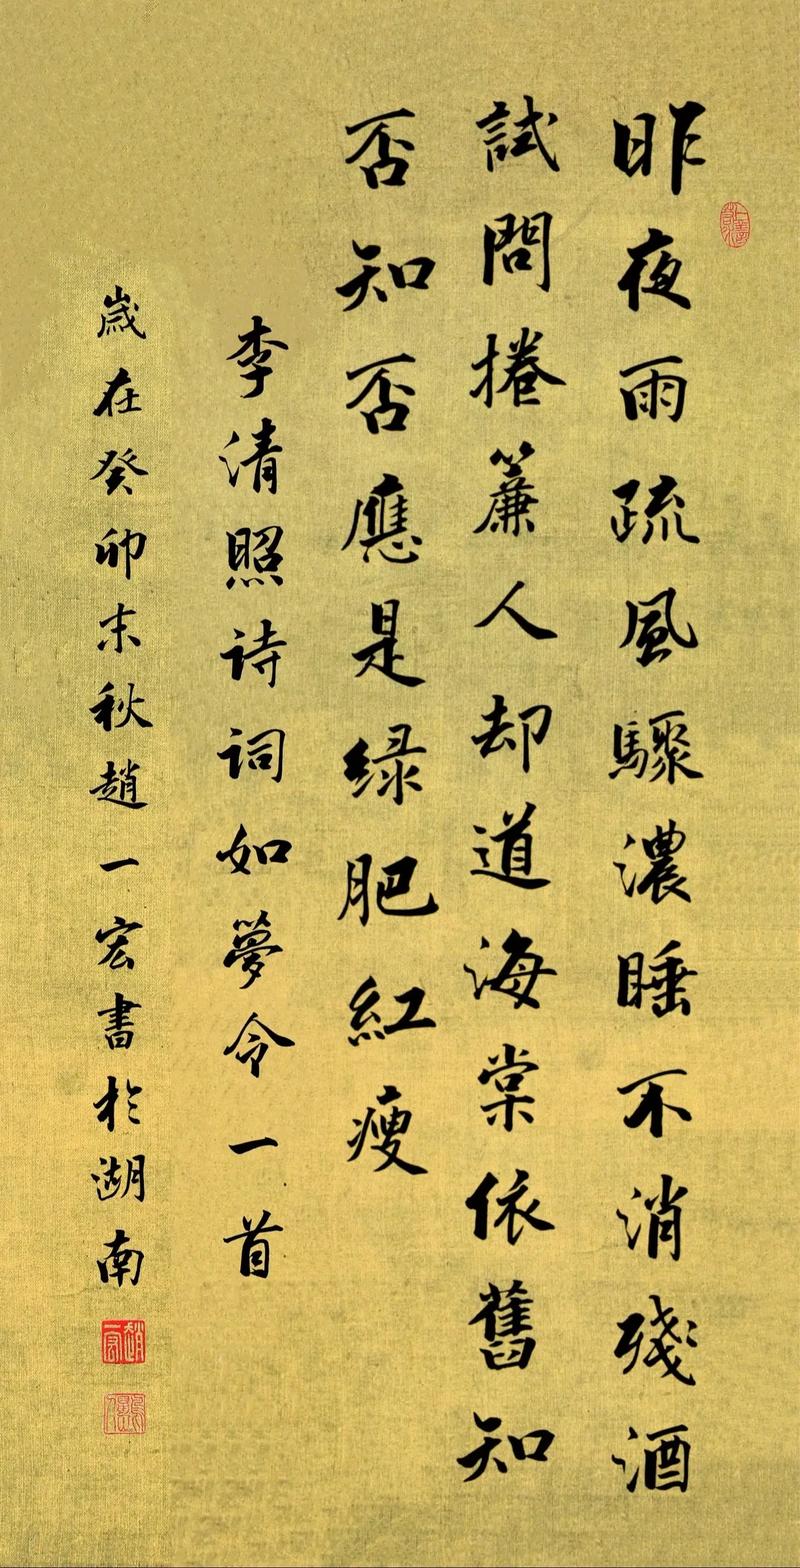 昨夜雨疏風驟濃睡不消殘酒
試問捲簾人却道海棠依舊知
否知否應是緑肥紅瘦
李清照诗词如夢令一首
歲在癸卯末秋趙一宏書於湖南